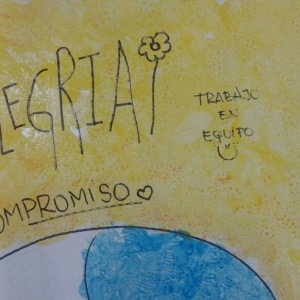 LEGRIA
TRABAJO
EN
EQUIPO
OMPROMISO